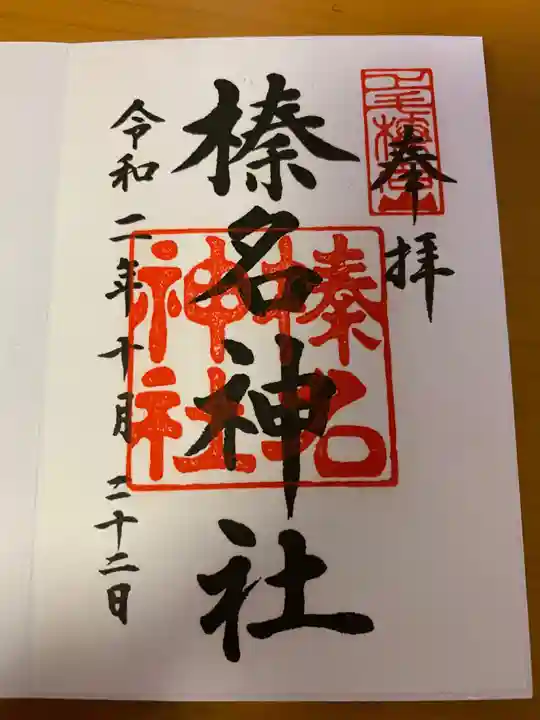 奉拝
榛名神社
榛名神社
令和二年十月二十二日